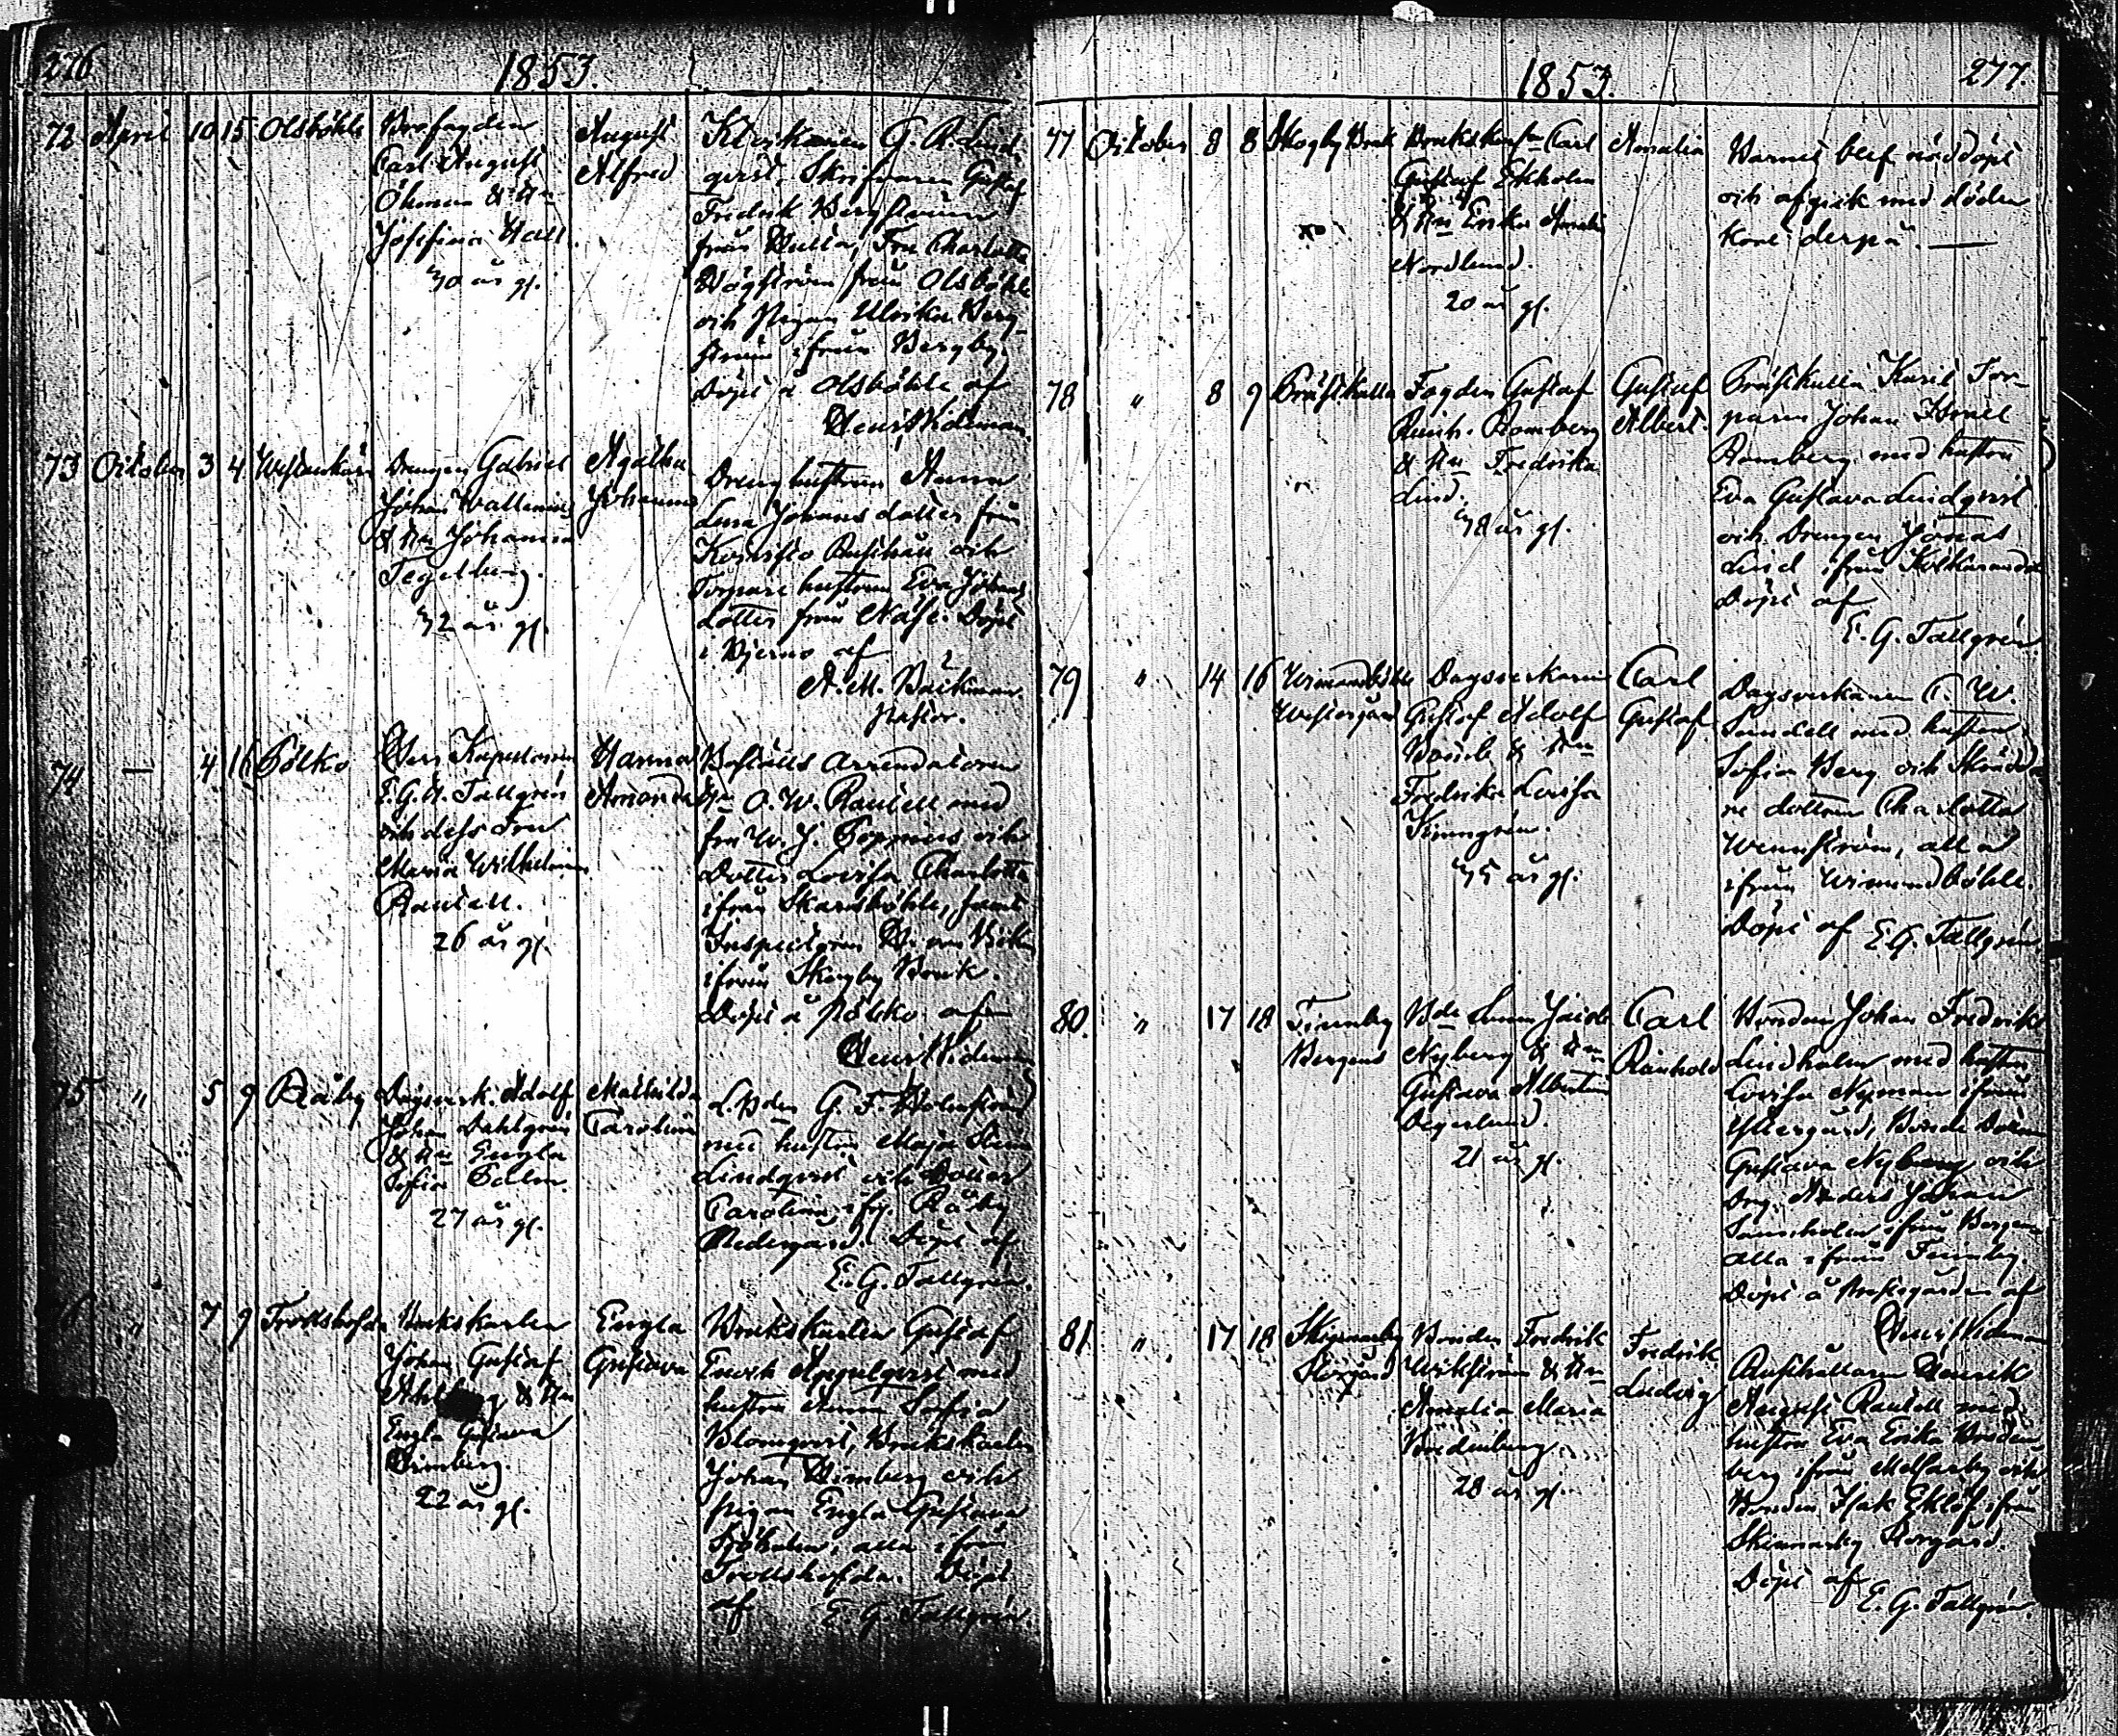 276
1853.
72 April 10 15 Olsböhle
Carl August
Öhman & Hu
Josefina Hall
30 år gl.
August
Alfred
G. A. Lind-
qvist, Skrifvaren Gustaf
Fredrik Bergström
från Fru Charlotta
Hägström från Olsböhle
och Pigan Ulrika Berg-
ström ifrån Bergby.
Döpt å Olsböhle af
Henr Wideman.
73 October 3 4
Drengen Gabriel
Johan Wallenius
& Hu Johanna
Tegelberg.
32 år gl.
Agatha
Johanna
Dreng hustrun Anna
Lena Johans dotter från
och
Torpare hustrun Eva Johans
dotter från Näse. Döpt
i Bjerno af
A. M. Backman.
Pastor.
74 — 4 16 Pölko
Herr Kapellanen
E. G. A. Tallgren
och dess Fru
Maria Wilhelmina
Rantell.
26 år gl.
Hanna
Amanda
Boställs Arrendatoren
Hr O. W. Rantell med
fru W. J. Poppius och
Dotter Lovisa Charlotta
ifrån Skarsböhle, samt
Inspectoren
ifrån Skogby Bruk.
Döpt å Pölko af
Henr Wideman
75 " 5 9 Råby
Dagsverk. Adolf
Johan Dahlgren
& Hu Engla
Sofia Palm.
27 år gl.
Mathilda
Carolina
G. F. Holmström
med hustru Maja Stina
Lindqvist och Dotter
Carolina, ifr. Råby
Nedergård. Döpt af
E. G. Tallgren.
76 " 7 9 Trollshofda
Brukskarlen
Johan Gustaf
& Hu
Engla Gustava
Dimberg.
22 år gl.
Engla
Gustava
Brukskarlen Gustaf
Enoch Appelqvist med
hustru Anna Sofia
Blomqvist, Brukskarlen
Johan Dimberg och
pigan Engla Gustava
Sjöholm, alla ifrån
Trollshofda. Döpt
af E. G. Tallgren
1853.
277.
77 October 8 8 Skogby Bruk
Brukskarln Carl
Gustaf Ekholm
& Hu Erika Amalia
Nordlund.
20 år gl.
Amalia
Barnet blef nöddöpt
och afgick med döden
kort derpå. —
78 " 8 9 Prästkulla
Fogden Gustaf
Reinh. Ramberg
& Hu Fredrika
Lind.
38 år gl.
Gustaf
Albert.
Prästkulla Karis Tor-
paren Johan Israel
Ramberg med hustru
Eva Gustava Lindqvist
och Drengen Jonas
Lind ifrån
Döpt af
E. G. Tallgren
79 " 14 16 Wimonböhle
Westergård
Dagsverkaren
Gustaf Adolf
& Hu
Fredrika Lovisa
35 år gl.
Carl
Gustaf
Dagsverkaren C. W.
Sundell med hustru
Sofia Berg och Skrädda-
re dottern Charlotta
Wennström, alla
ifrån Wimonböhle.
Döpt af E. G. Tallgren
80. " 17 18 Finnby
Bergans
Bde Sonen Jacob
Nyberg & Hu
Gustava Albertina
Degerlund.
21 år gl.
Carl
Reinhold
Bonden Johan Fredrik
Lindholm med hustru
Lovisa Nyman ifrån
Yttergård, Bonde Dottren
Gustava Nyberg och
Drg. Anders Johan
ifrån Bergans
alla ifrån Finnby.
Döpt å Prestgården af
Henr Wideman
81 " 17 18 Skinnarby
Storgård
Bonden Fredrik
Wikström & Hu
Amalia Maria
Bredenberg.
28 år gl.
Fredrik
Ludvig
Rusthållaren Henrik
August Rantell med
hustru Eva Erika Breden-
berg ifrån och
Bonden Isak Eklöf ifrån
Skinnarby Storgård.
Döpt af
E. G. Tallgren.